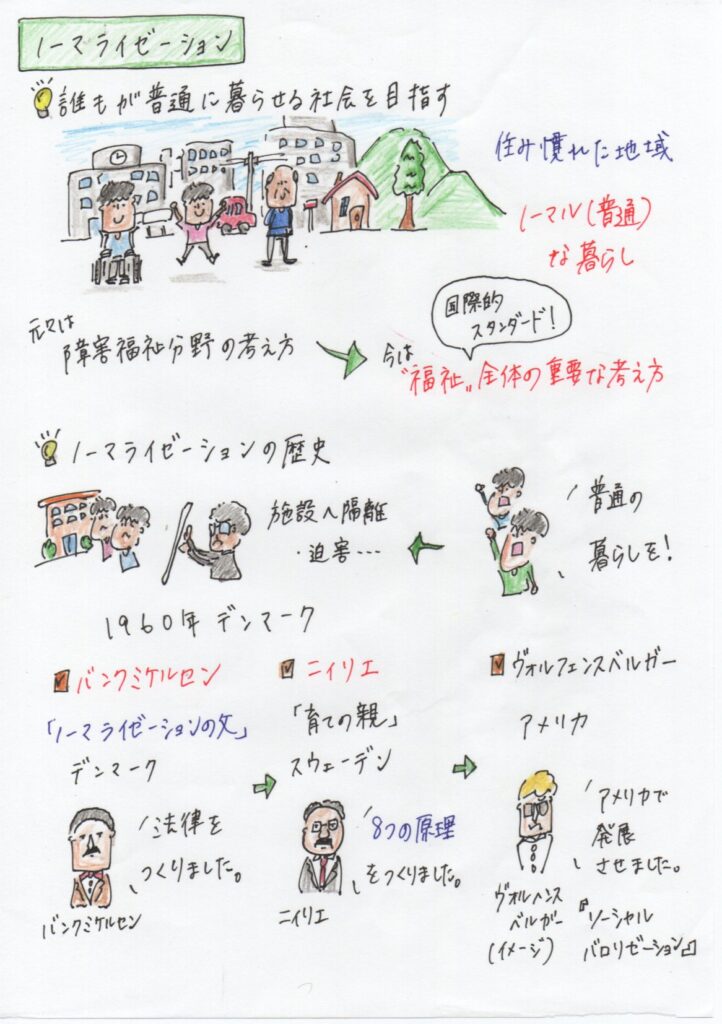 ノーマライゼーション
誰もが普通に暮らせる社会を目指す
住み慣れた地域
ノーマル(普通)
な暮らし
元々は
障害福祉分野の考え方
国際的
スタンダード！
今は
“福祉„全体の重要な考え方
ノーマライゼーションの歴史
施設へ隔離
・迫害…
普通の
暮らしを！
1960年 デンマーク
バンクミケルセン
「ノーマライゼーションの父」
デンマーク
法律を
つくりました。
バンクミケルセン
ニィリエ
「育ての親」
スウェーデン
8つの原理
をつくりました。
ニィリエ
ヴォルフェンスベルガー
アメリカ
アメリカで
発展
させました。
ヴォルヘンス
ベルガー
(イメージ)
『ソーシャル
バロリゼーション』